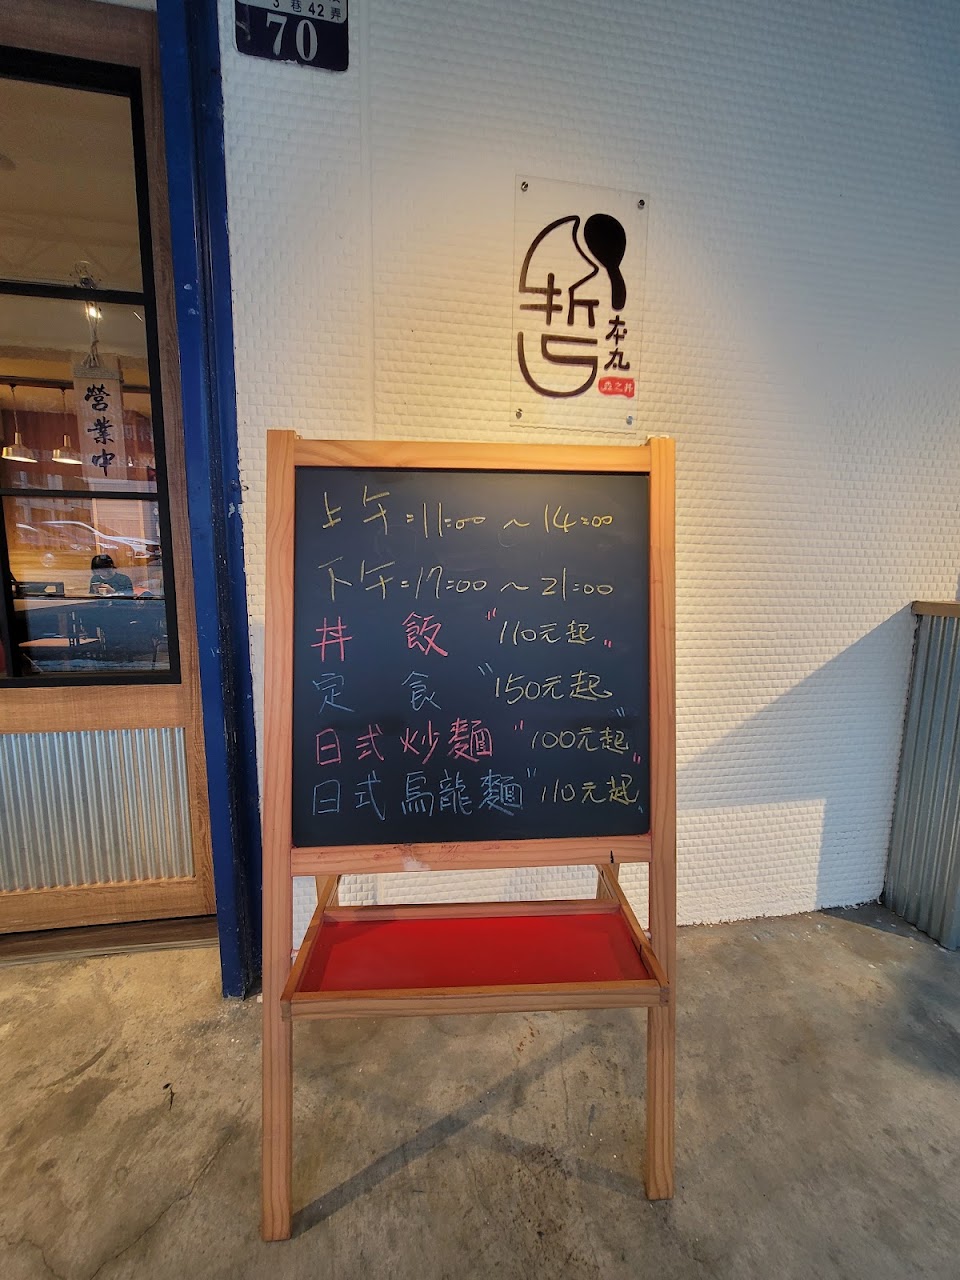 3巷42弄
70
營業中
哲
本丸
森之丼
上午:11:00~14:00
下午:17:00~21:00
丼 飯 "110元起"
定 食 "150元起"
日式炒麵 "100元起"
日式烏龍麵 "110元起"